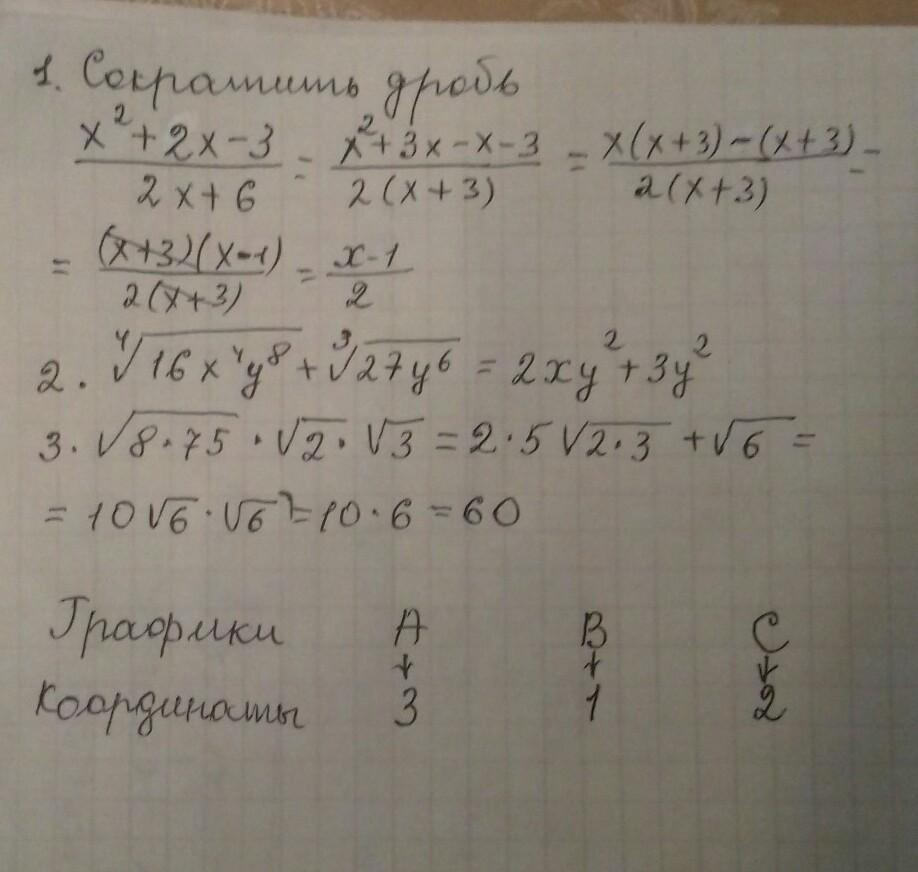 1. Сократить дробь
(x²+2x-3)/(2x+6) = (x²+3x-x-3)/(2(x+3)) = (x(x+3)-(x+3))/(2(x+3)) =
= ((x+3)(x-1))/(2(x+3)) = (x-1)/2
2. ⁴√(16x⁴y⁸) + ³√(27y⁶) = 2xy² + 3y²
3. √(8·75) · √2 · √3 = 2·5√(2·3) + √6 =
= 10√6 · √6 = 10·6 = 60
Графики A B C
↓ ↓ ↓
Координаты 3 1 2